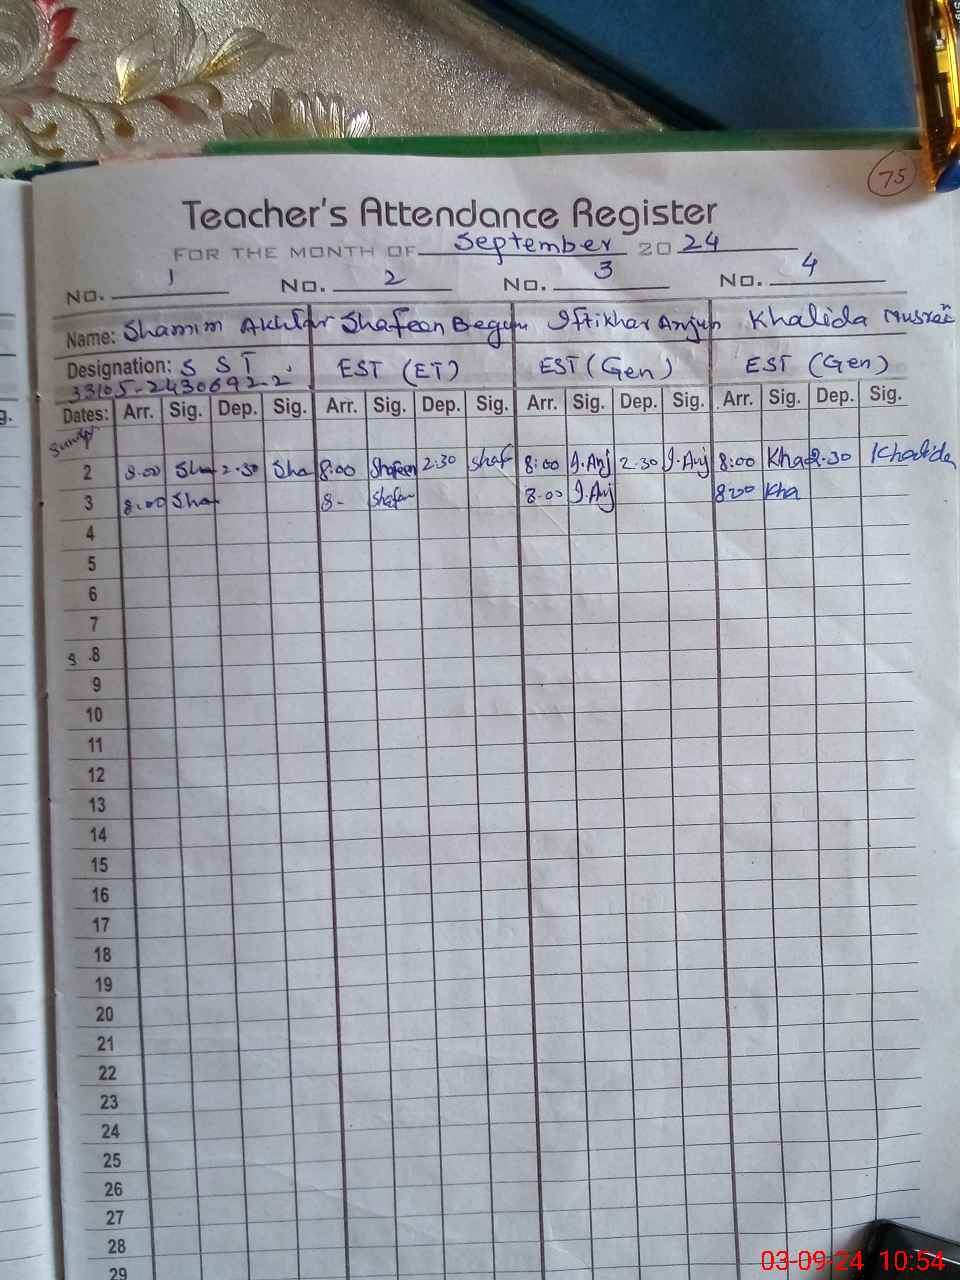 75
Teacher's Attendance Register
FOR THE MONTH OF September 20 24
No. 1 No. 2 No. 3 No. 4
Name: Shamim Akhtar Shafeen Begum Iftikhar Anjum Khalida
Designation: S S T. EST (ET) EST (Gen) EST (Gen)
33105-2430692-2
g. Dates: Arr. Sig. Dep. Sig. Arr. Sig. Dep. Sig. Arr. Sig. Dep. Sig. Arr. Sig. Dep. Sig.
Sunday
2 8:00 Sha 2:30 Sha 8:00 Shafeen 2:30 Shaf 8:00 I.Anj 2:30 I.Anj 8:00 Kha 2:30 Khalida
3 8:00 Sha 8- Shafeen 8:00 I.Anj 8:00 Kha
4
5
6
7
S 8
9
10
11
12
13
14
15
16
17
18
19
20
21
22
23
24
25
26
27
28
29
03-09-24 10:54